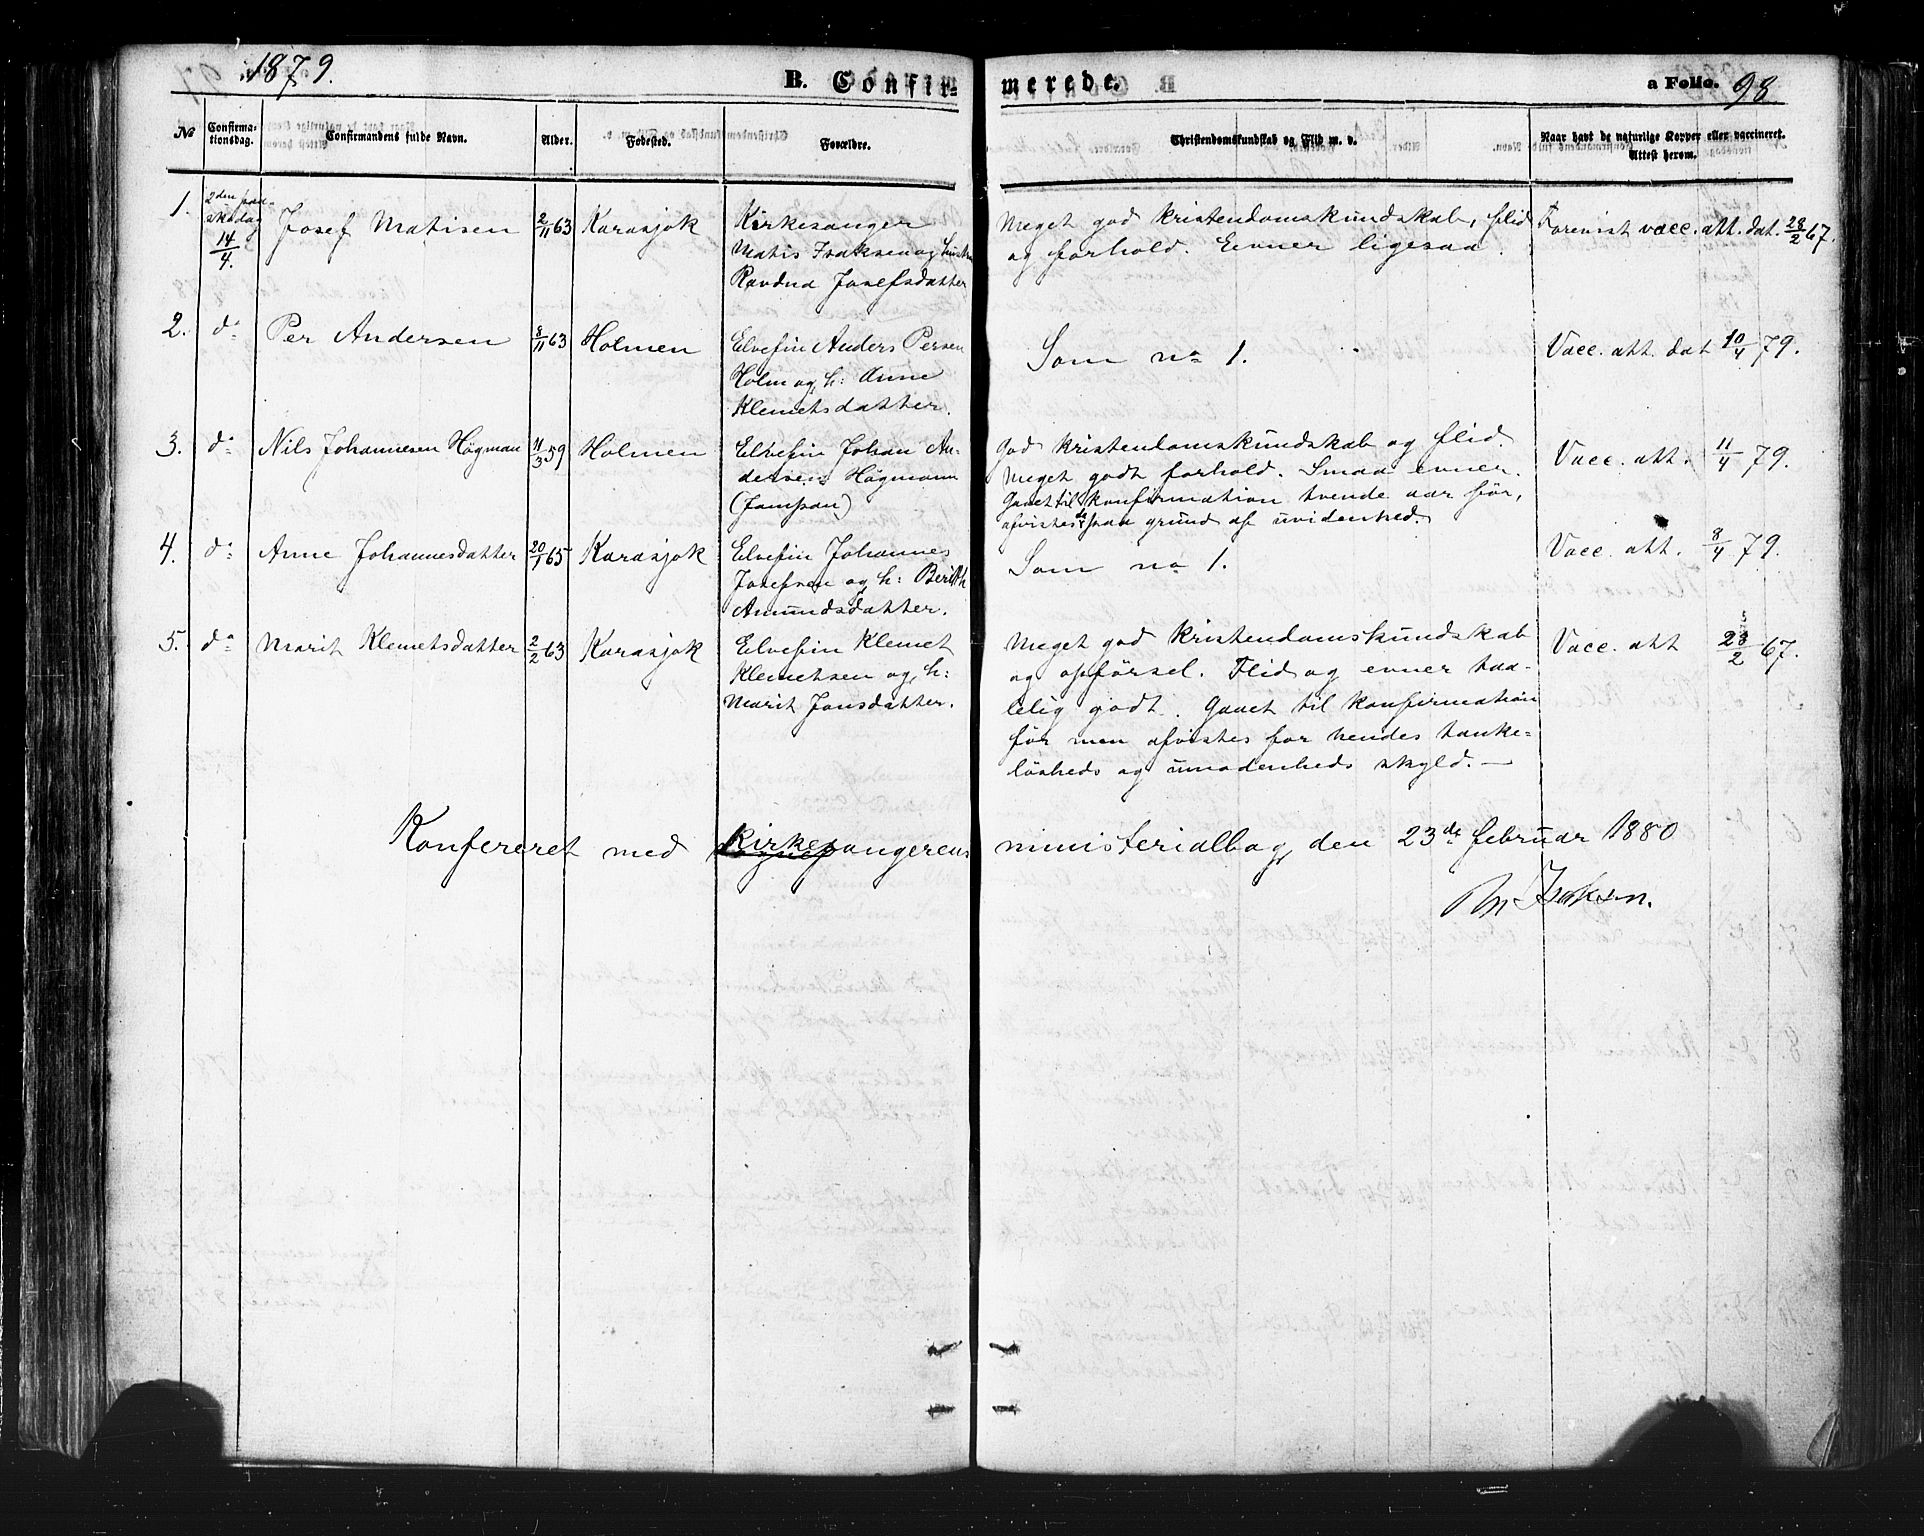 1879.
B. Confir-
merede.
a Folio. 98
No
Confirma-
tionsdag.
Confirmandens fulde Navn.
Alder.
Fødested.
Forældre.
Christendomskundskab og Flid m. v.
Naar havt de naturlige Kopper eller vaccineret.
Attest herom.
1. 2den paa-
skedag
14/4. Josef Matisen 2/11 63 Karasjok Kirkesanger
Matis Isaksen og hustru
Ravdna Josefsdatter
Meget god kristendomskundskab, flid
og forhold. Evner ligesaa.
Forevist vacc. att. dat. 28/2 67.
2. do Per Andersen 8/11 63 Holmen Elvefin Anders Persen
Holm og h: Anne
Klemetsdatter.
Som no 1.
Vacc. att. dat 10/4 79.
3. do Nils Johannesen Högman 11/3 59 Holmen Elvefin Johan An-
dersen Högmann
God kristendomskundskab og flid.
Meget godt forhold. Smaa evner.
Gaaet til konfirmation tvende aar før,
afvistes da paa grund af uvidenhed.
Vacc. att. 11/4 79.
4. do Anne Johannesdatter 20/1 65 Karasjok Elvefin Johannes
Josefsen og h: Berith
Amundsdatter.
Som no 1.
Vacc. att. 8/4 79.
5. do Marit Klemetsdatter 2/2 63 Karasjok Elvefin Klemet
Klemetsen og h:
Marit Jonsdatter.
Meget god kristendomskundskab
og opførsel. Flid og evner taa-
lelig godt. Gaaet til konfirmation
før men afvistes for hendes tanke-
løsheds og umodenheds skyld. —
Vacc. att 28/2 67.
Konfereret med Kirkesangerens ministerialbog, den 23de februar 1880
M Isaksen.